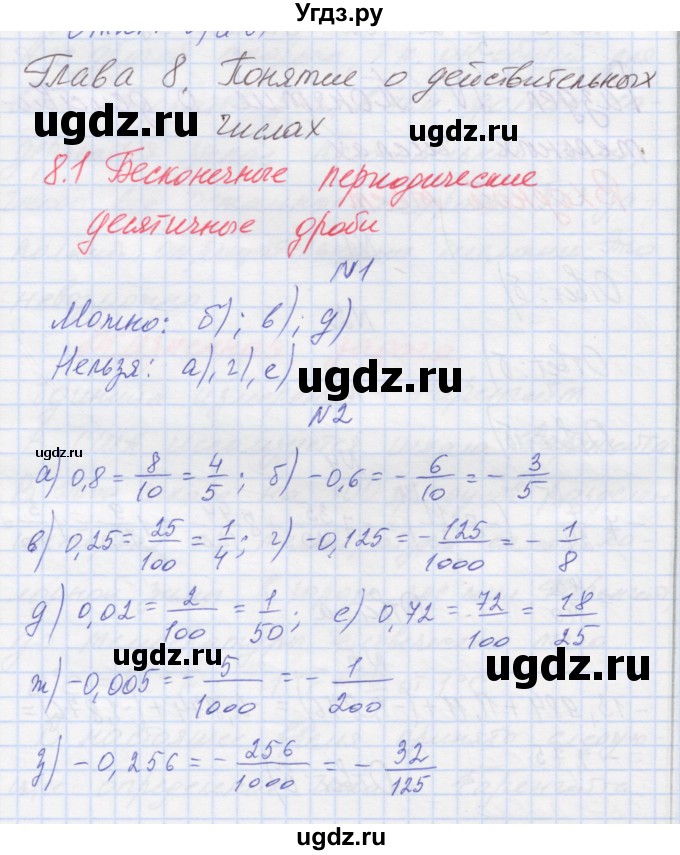 Угдз.ру
Глава 8. Понятие о действительных
числах
ugdz.ru ugdz.ru
8.1 Бесконечные периодические
десятичные дроби
ugdz.ru
N1
Можно: б); в); д)
Нельзя: а), г), е)
ugdz.ru
N2
ugdz.ru
а) 0,8 = 8/10 = 4/5; б) -0,6 = - 6/10 = - 3/5
в) 0,25 = 25/100 = 1/4; г) -0,125 = - 125/1000 = - 1/8
д) 0,02 = 2/100 = 1/50; е) 0,72 = 72/100 = 18/25
ugdz.ru ugdz.ru
ж) -0,005 = - 5/1000 = - 1/200
з) -0,256 = - 256/1000 = - 32/125
ugdz.ru